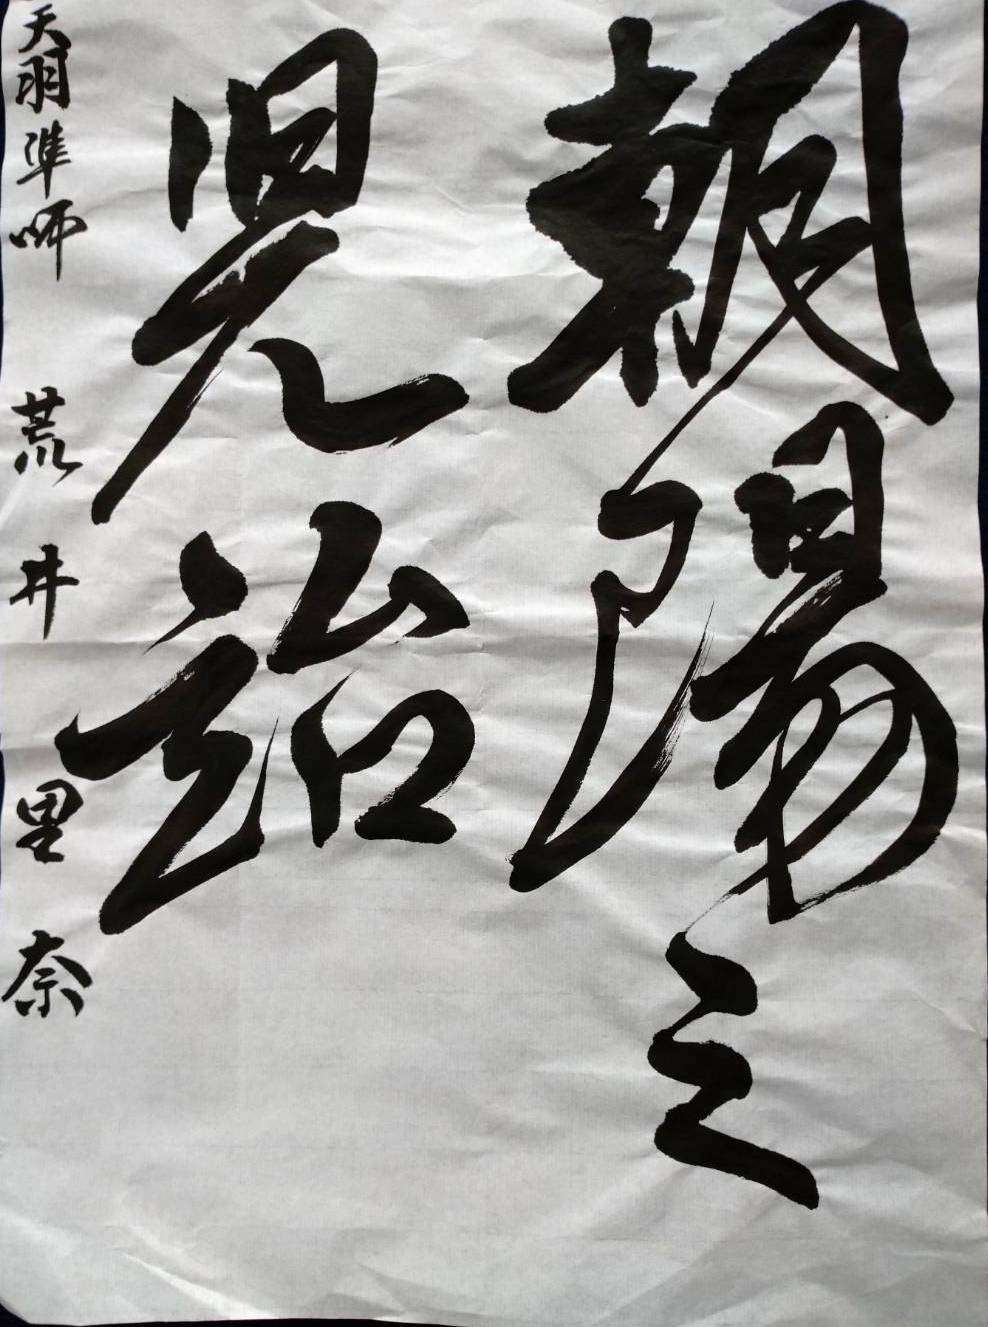 朝陽之
児治
天羽準師 荒井里奈